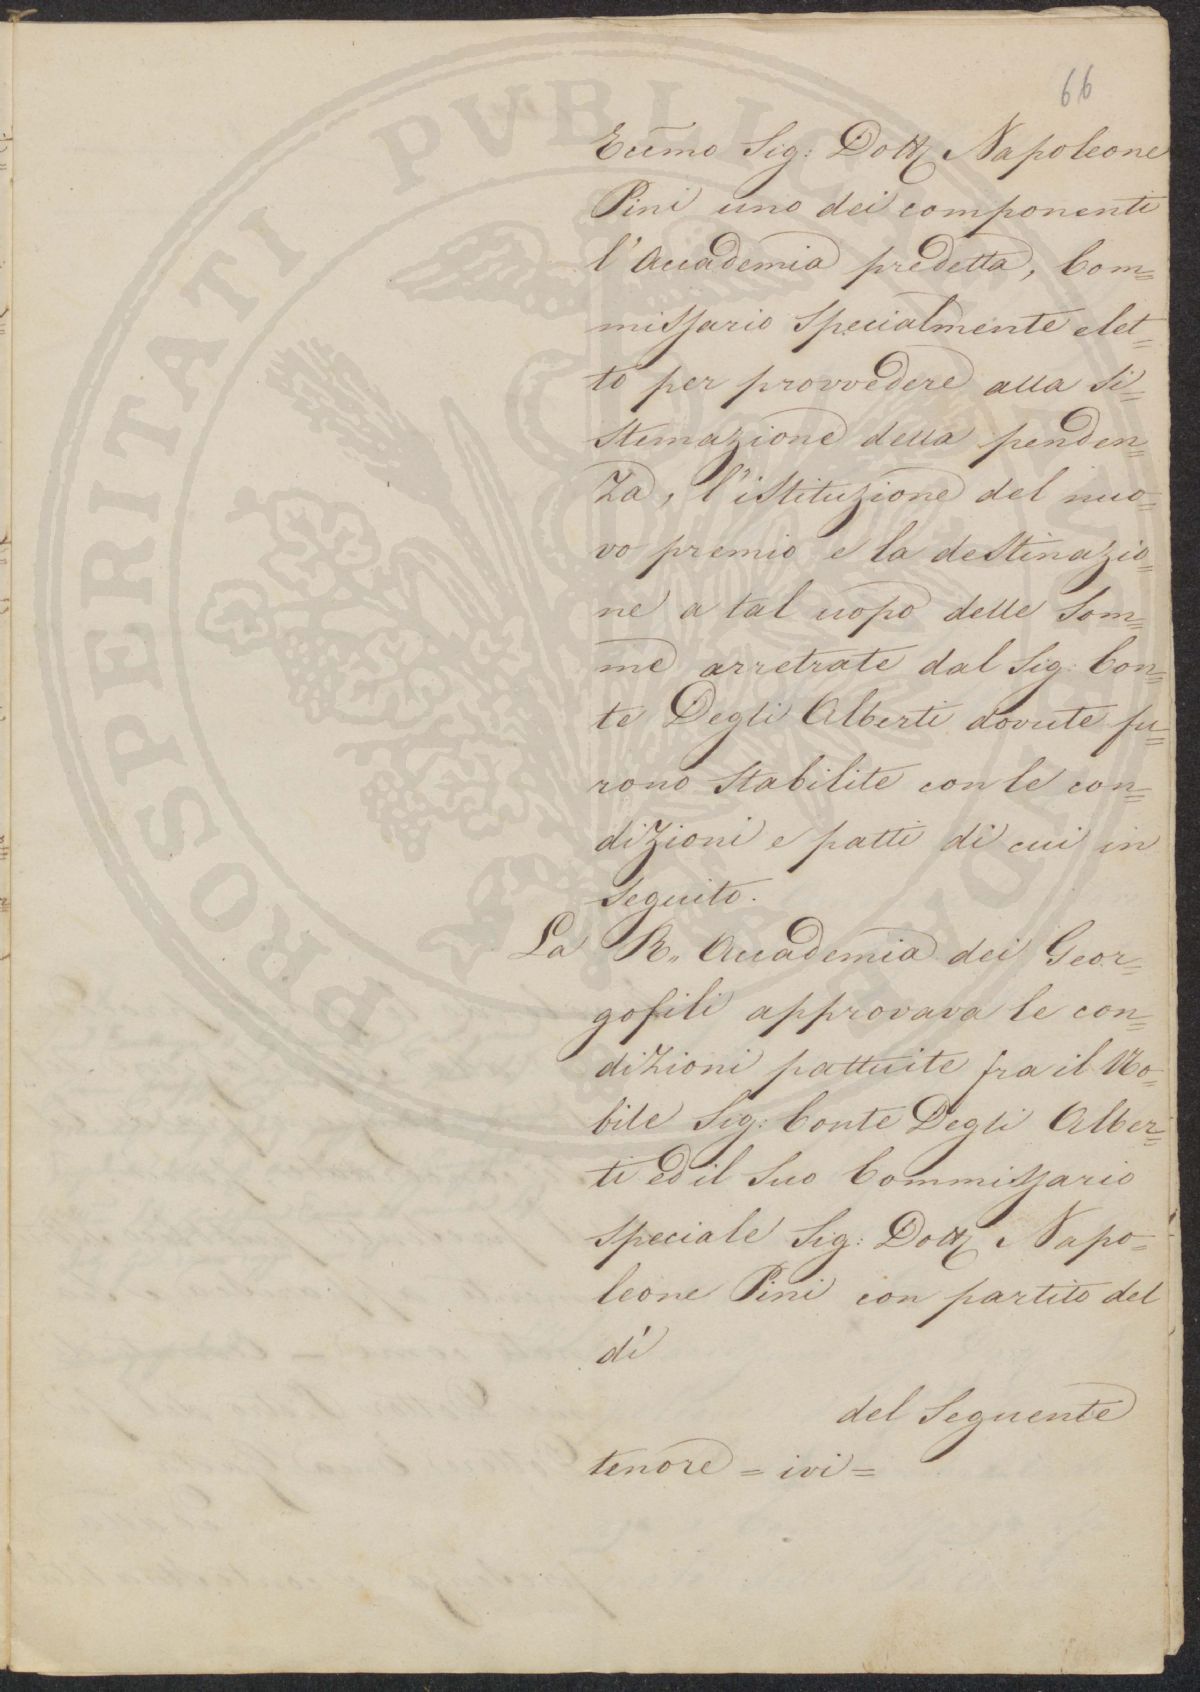 66
Eccmo Sig: Dott. Napoleone
Pini uno dei componenti
l'Accademia predetta, Com=
missario specialmente elet=
to per provvedere alla si=
stemazione della penden=
za, l'istituzione del nuo=
vo premio e la destinazio=
ne a tal uopo delle som=
me arretrate dal Sig: Con=
te Degli Alberti dovute fu=
rono stabilite con le con=
dizioni e patti di cui in
seguito.
La R.. Accademia dei Geor=
gofili approvava le con=
dizioni pattuite fra il No=
bile Sig: Conte Degli Alber=
ti ed il suo Commissario
speciale Sig: Dott. Napo=
leone Pini con partito del
dì
del seguente
tenore = ivi =
PROSPERITATI PVBLICAE